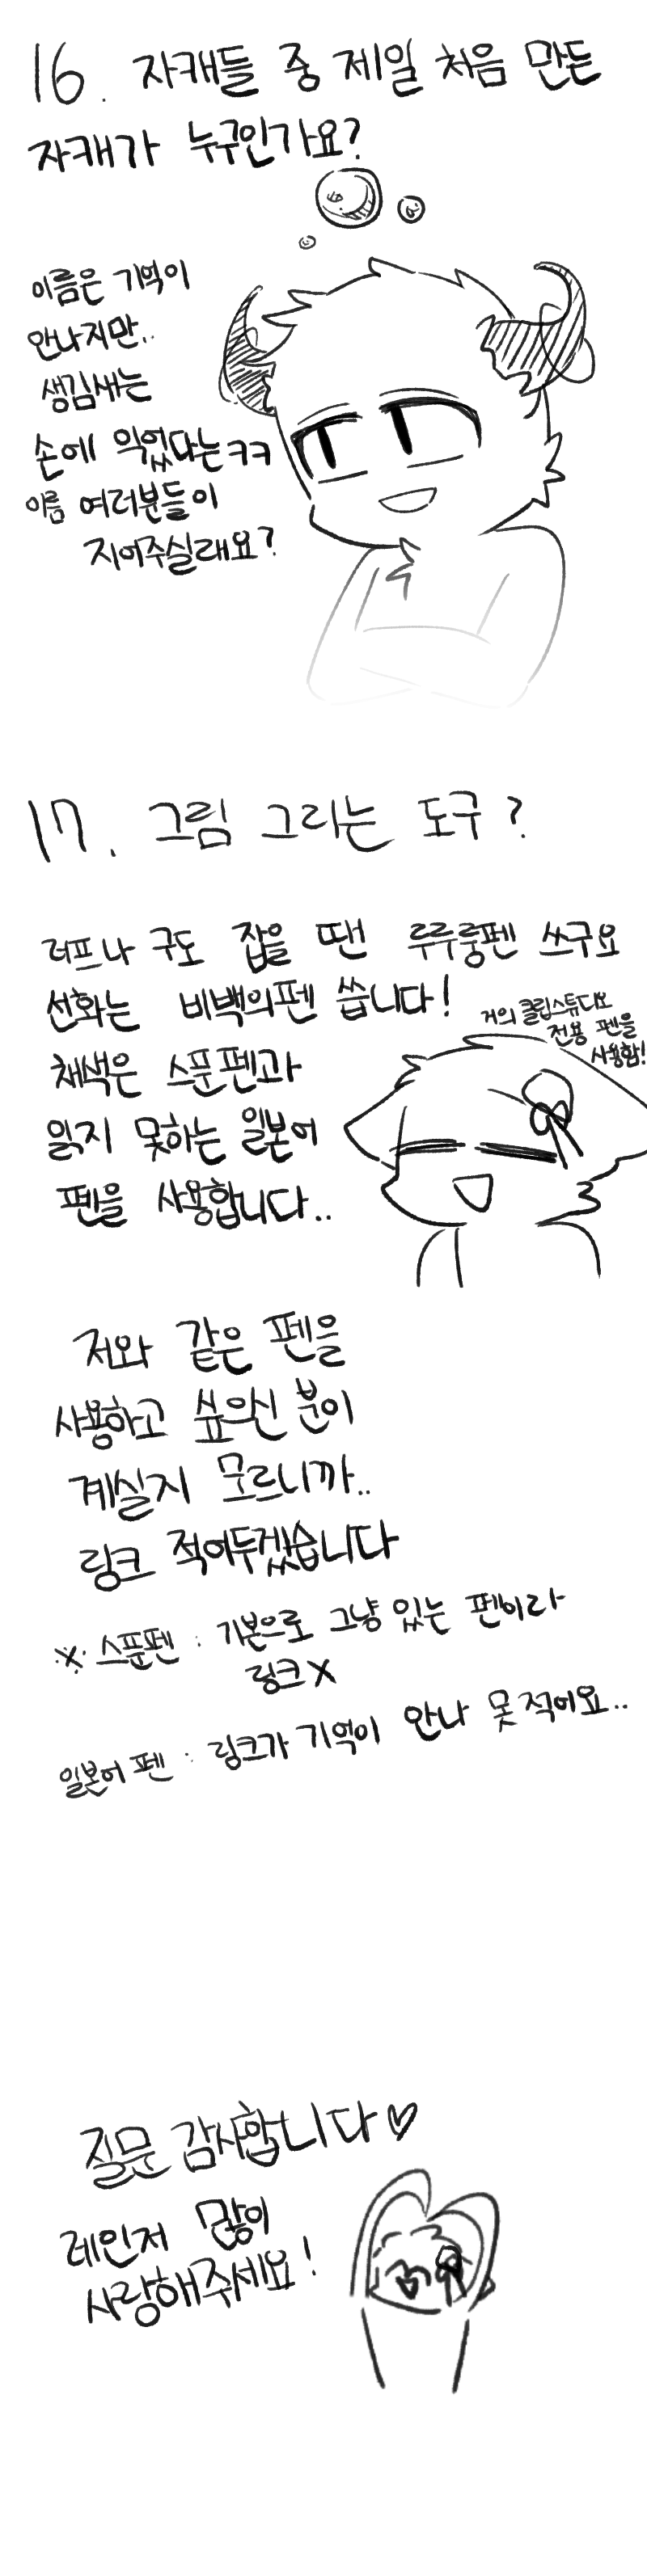 16. 자캐들 중 제일 처음 만든
자캐가 누구인가요?
이름은 기억이
안나지만..
생김새는
손에 익었다는ㅋㅋ
이름 여러분들이
지어주실래요?
17. 그림 그리는 도구?
러프나 구도 잡을 땐 루루룽펜 쓰구요
선화는 비백의펜 씁니다!
거의 클립스튜디오
전용 펜을
사용함!
채색은 스푼펜과
읽지 못하는 일본어
펜을 사용합니다..
저와 같은 펜을
사용하고 싶으신 분이
계실지 모르니까..
링크 적어두겠습니다
※ 스푼펜 : 기본으로 그냥 있는 펜이라
링크X
일본어 펜 : 링크가 기억이 안나 못 적어요..
질문 감사합니다♡
레인저 많이
사랑해주세요!